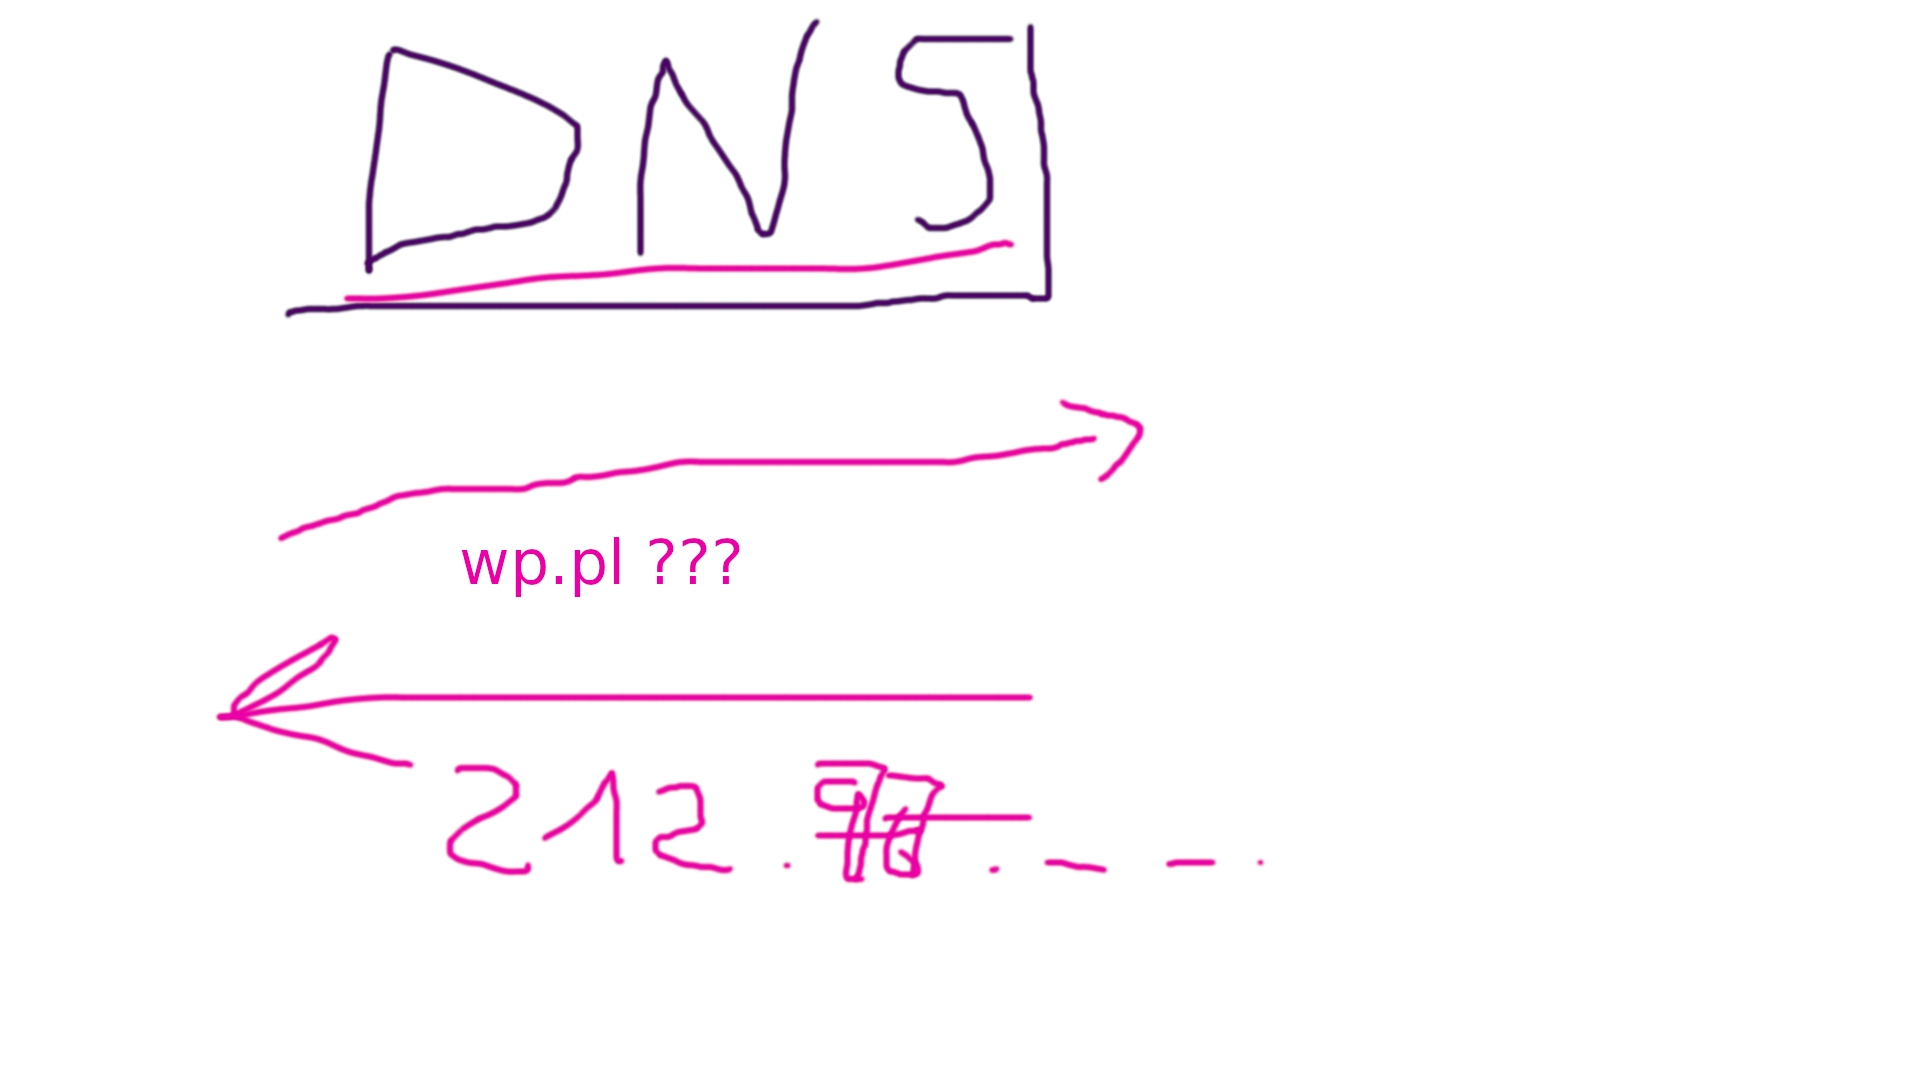 DNS
wp.pl ???
212 . 77 . _ _ .